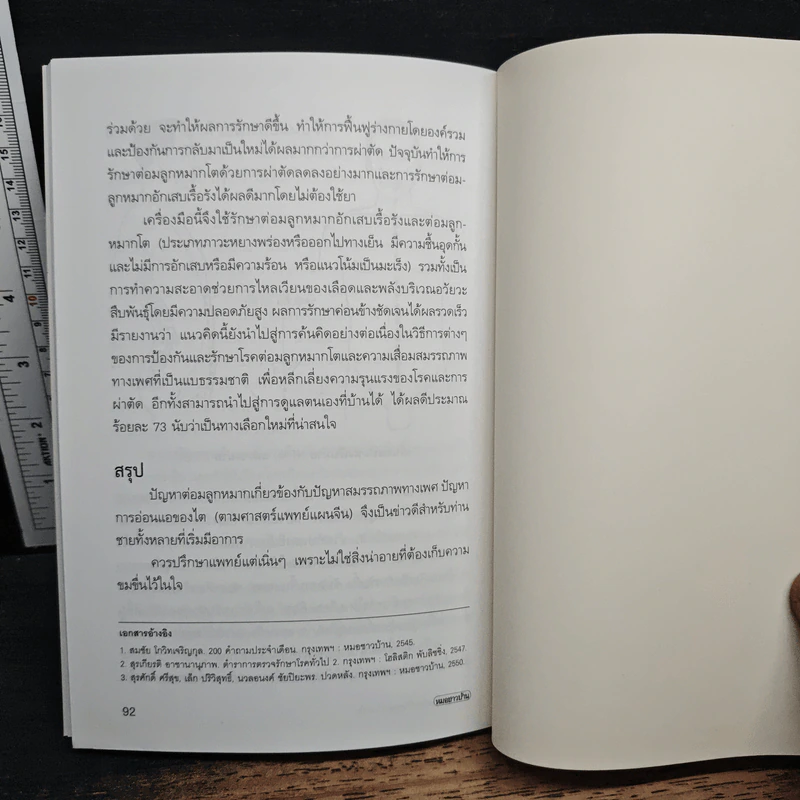 ร่วมด้วย จะทำให้ผลการรักษาดีขึ้น ทำให้การฟื้นฟูร่างกายโดยองค์รวม
และป้องกันการกลับมาเป็นใหม่ได้ผลมากกว่าการผ่าตัด ปัจจุบันทำให้การ
รักษาต่อมลูกหมากโตด้วยการผ่าตัดลดลงอย่างมากและการรักษาต่อม-
ลูกหมากอักเสบเรื้อรังได้ผลดีมากโดยไม่ต้องใช้ยา
เครื่องมือนี้จึงใช้รักษาต่อมลูกหมากอักเสบเรื้อรังและต่อมลูก-
หมากโต (ประเภทภาวะหยางพร่องหรือออกไปทางเย็น มีความชื้นอุดกั้น
และไม่มีการอักเสบหรือมีความร้อน หรือแนวโน้มเป็นมะเร็ง) รวมทั้งเป็น
การทำความสะอาดช่วยการไหลเวียนของเลือดและพลังบริเวณอวัยวะ
สืบพันธุ์โดยมีความปลอดภัยสูง ผลการรักษาค่อนข้างชัดเจนได้ผลรวดเร็ว
มีรายงานว่า แนวคิดนี้ยังนำไปสู่การค้นคิดอย่างต่อเนื่องในวิธีการต่างๆ
ของการป้องกันและรักษาโรคต่อมลูกหมากโตและความเสื่อมสมรรถภาพ
ทางเพศที่เป็นแบธรรมชาติ เพื่อหลีกเลี่ยงความรุนแรงของโรคและการ
ผ่าตัด อีกทั้งสามารถนำไปสู่การดูแลตนเองที่บ้านได้ ได้ผลดีประมาณ
ร้อยละ 73 นับว่าเป็นทางเลือกใหม่ที่น่าสนใจ
สรุป
ปัญหาต่อมลูกหมากเกี่ยวข้องกับปัญหาสมรรถภาพทางเพศ ปัญหา
การอ่อนแอของไต (ตามศาสตร์แพทย์แผนจีน) จึงเป็นข่าวดีสำหรับท่าน
ชายทั้งหลายที่เริ่มมีอาการ
ควรปรึกษาแพทย์แต่เนิ่นๆ เพราะไม่ใช่สิ่งน่าอายที่ต้องเก็บความ
ขมขื่นไว้ในใจ
เอกสารอ้างอิง
1. สมชัย โกวิทเจริญกุล. 200 คำถามประจำเดือน. กรุงเทพฯ : หมอชาวบ้าน, 2545.
2. สุรเกียรติ อาชานานุภาพ. ตำราการตรวจรักษาโรคทั่วไป 2. กรุงเทพฯ : โฮลิสติก พับลิชชิ่ง, 2547.
3. สุรศักดิ์ ศรีสุข, เล็ก ปริวิสุทธิ์, นวลอนงค์ ชัยปิยะพร. ปวดหลัง. กรุงเทพฯ : หมอชาวบ้าน, 2550.
92
หมอชาวบ้าน